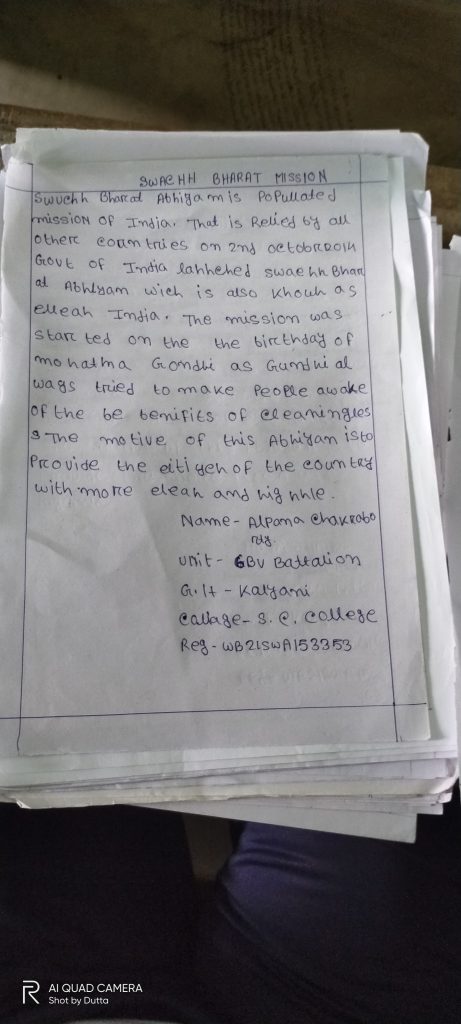 SWACHH BHARAT MISSION
Swuchh Bharat Abhiyam is PoPullated
mission of India. That is Relied by all
othere countries on 2nd octobre2014
Govt of India lahhehed swaehh Bhar
at Abhiyam wich is also khouh as
elleah India. The mission was
started on the the birthday of
mohatma Gondhi as Gundhi al
ways tried to make People awake
of the be benifits of cleaningles
s The motive of this Abhiyan isto
Provide the eitiyeh of the country
with more eleah and hig hhle.
Name - Alpana Chakrabo
rty.
unit - 6BN Battalion
G.H - Kalyani
Callage - S. C. College
Reg - WB21SWA153353
AI QUAD CAMERA
Shot by Dutta